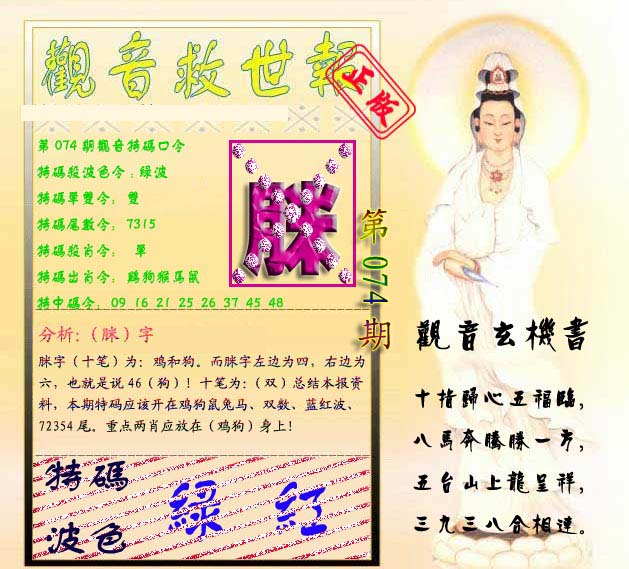 觀音救世報
正版
第074期觀音特碼口令
特碼殺波色令:綠波
特碼單雙令: 雙
特碼尾數令: 7315
特碼殺肖令: 單
特碼出肖令: 鷄狗猴馬鼠
特中碼令: 09 16 21 25 26 37 45 48
脒
第074期
分析:(脒)字
脒字(十笔)为:鸡和狗。而脒字左边为四,右边为
六,也就是说46(狗)!十笔为:(双)总结本报资
料,本期特码应该开在鸡狗鼠兔马、双数、蓝红波、
72354尾。重点两肖应放在(鸡狗)身上!
特碼
波色
綠 紅
觀音玄機書
十指歸心五福臨,
八馬奔騰勝一方,
五台山上龍呈祥,
三九三八合相連。